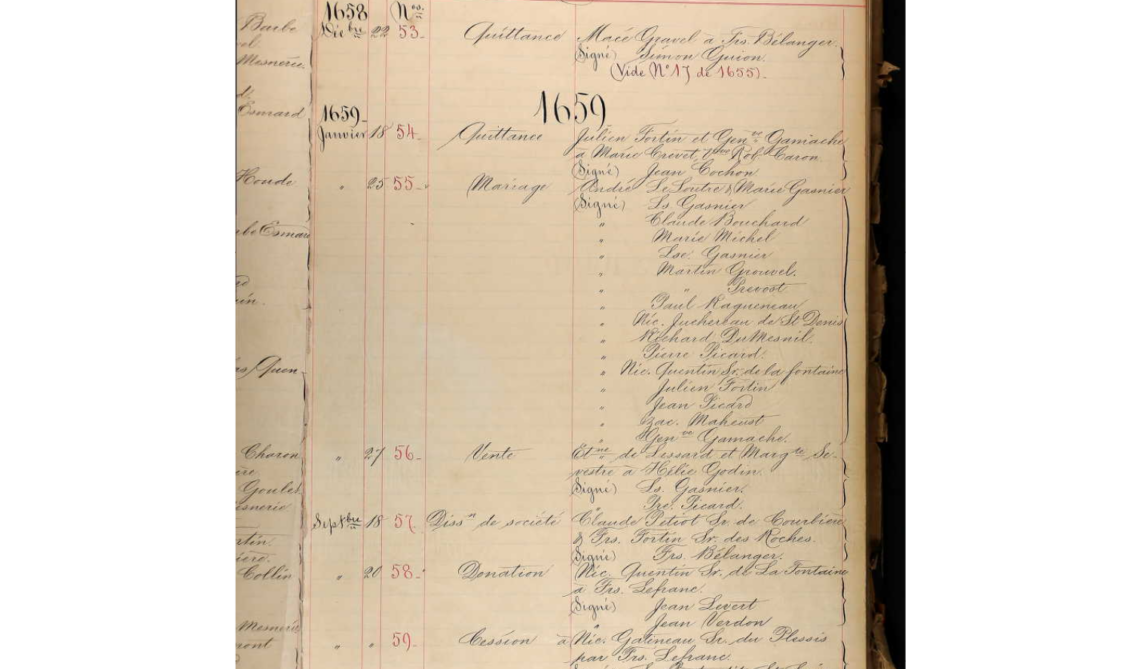 Barbe
Mesnerie.
Esmard
Honde
Esmard
Charon
Goulet
Collin
1658 Nos.
Décbre 22 53 Quittance Macé Gravel à Frs. Bélanger.
(Signé) Simon Guion.
(Vide No 17 de 1655).
1659
1659
Janvier 18 54 Quittance Julien Fortin et Genve Gamache
à Marie Crevet, Rob. Caron
(Signé) Jean Cochon
" 25 55 Mariage André LeLoutre & Marie Gasnier
(Signé) Ls. Gasnier
" Claude Bouchard
" Marie Michel
" Gasnier
" Martin Grouvel.
" " Prevost
" Paul Ragueneau
" Nic. Juchereau de St Denis
" Rochard DuMesnil.
" Pierre Picard.
" Nic. Quentin Sr. de la fontaine
" Julien Fortin
" Jean Picard
" Zac. Maheust
" Genve Gamache.
" 27 56 Vente Etne de Lessard et Margte Se-
vestre à Hélie Godin.
(Signé) Ls. Gasnier.
" Pre. Picard.
Septbre 18 57 Dissn de société Claude Petiot Sr. de Courbière
& Frs. Fortin Sr. des Roches.
(Signé) Frs. Bélanger.
" 20 58 Donation Nic. Quentin Sr. de La Fontaine
à Frs. Lefranc.
(Signé) Jean Levert
" Jean Verdon
" " 59 Cession à Nic. Gateneau Sr. du Plessis
par Frs. Lefranc.